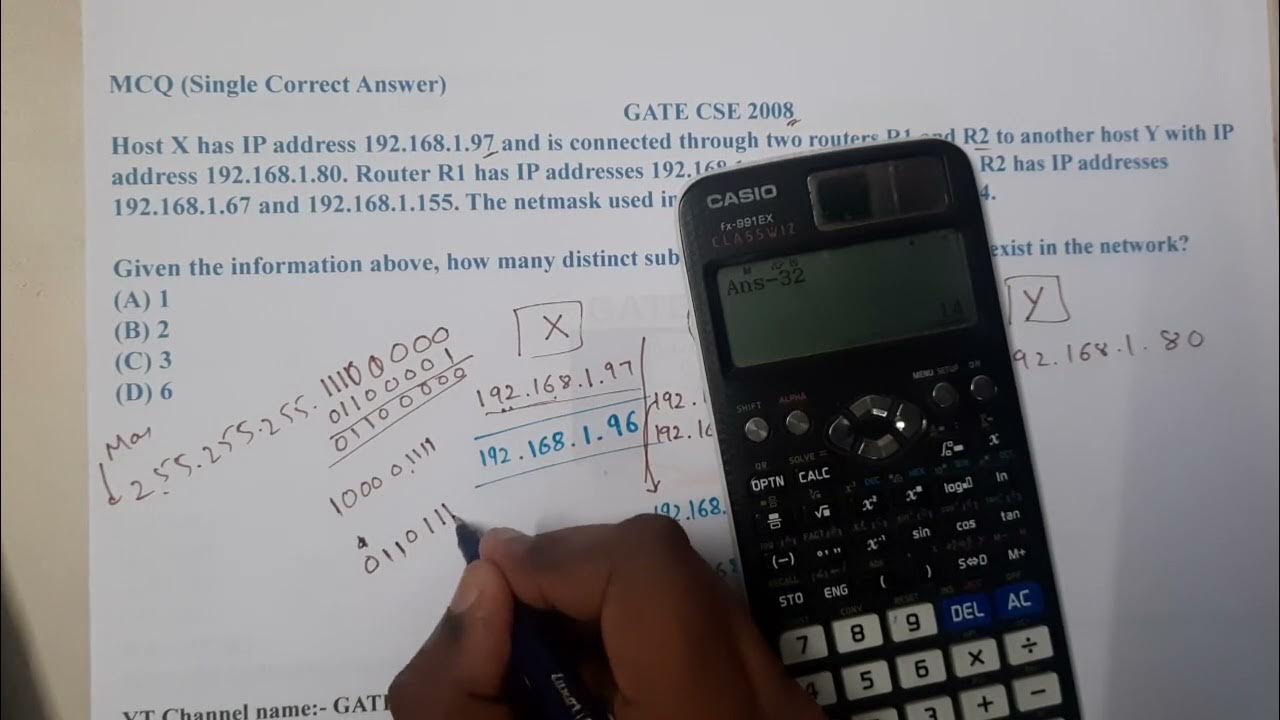 MCQ (Single Correct Answer)
GATE CSE 2008
Host X has IP address 192.168.1.97 and is connected through two routers R1 and R2 to another host Y with IP
address 192.168.1.80. Router R1 has IP addresses 192.168. R2 has IP addresses
192.168.1.67 and 192.168.1.155. The netmask used in 4.
Given the information above, how many distinct sub exist in the network?
(A) 1
(B) 2
(C) 3
(D) 6
X
Y
192.168.1.97
192.168.1.96
92.168.1.80
255.255.255.11100000
01100001
01100000
10000,1111
0110111
192.
192.16
192.168.
YT Channel name:- GATE
CASIO
fx-991EX
CLASSWIZ
Ans-32
14
SHIFT ALPHA MENU SETUP ON
OPTN CALC x
√ x² log ln
(−) x⁻¹ sin cos tan
STO ENG ( ) S⇔D M+
7 8 9 DEL AC
4 5 6 × ÷
3 + −